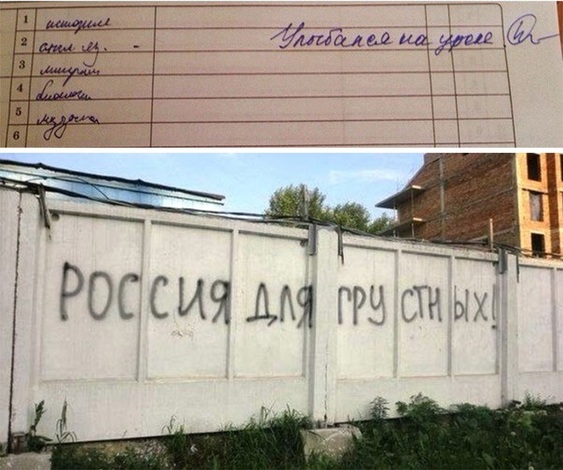 1 история
2 англ яз. - Улыбался на уроке
3
4 биология
5 музыка
6
РОССИЯ ДЛЯ ГРУСТНЫХ!